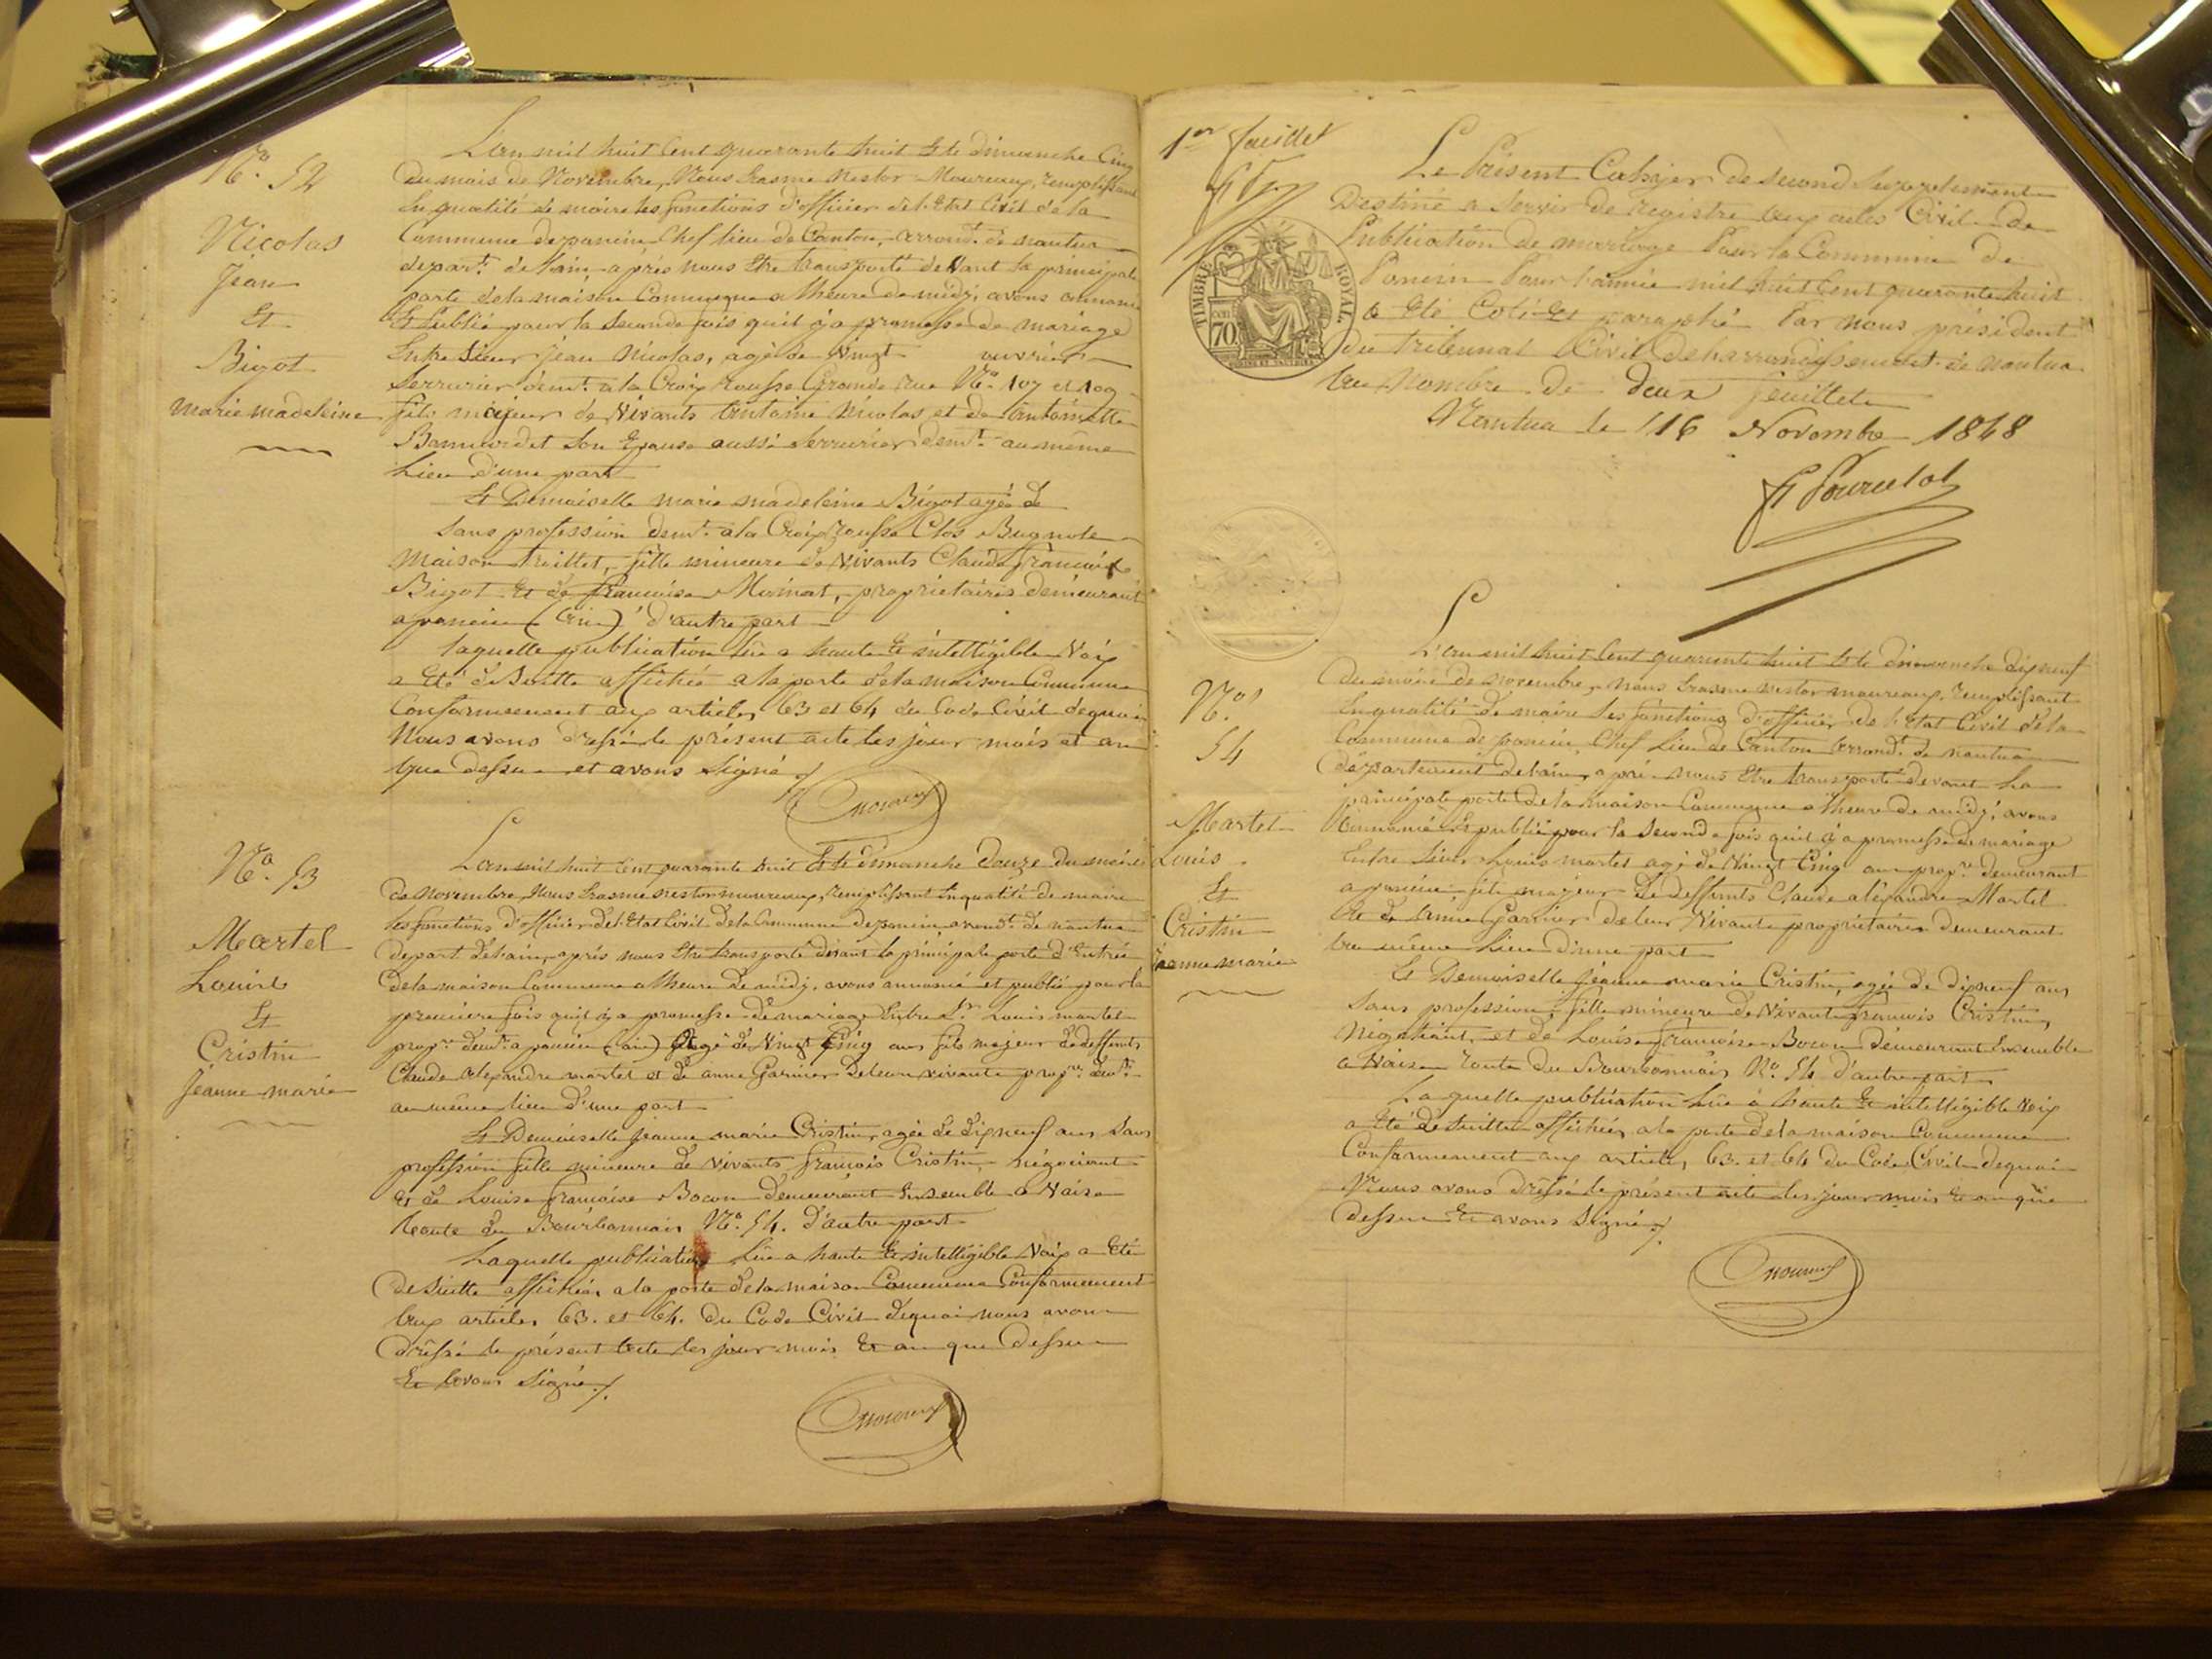 N.o 52
Nicolas
Jean
Et
Bigot
marie madeleine
L'an mil huit Cent quarante huit Et le dimanche Cinq
du mois de Novembre, Nous Erasme Nestor Moureaux, remplissant
En qualité de maire les fonctions d'officier de l'Etat Civil de la
Commune de poncin Chef lieu de Canton, arrond.t de nantua
depart.t de l'ain, après nous Etre transporté devant la principale
porte de la maison Commune a l'heure de midi, avons annoncé
Et Publié pour la Seconde fois qu'il y a promesse de mariage
Entre Sieur Jean Nicolas, agé de Vingt ouvrier
Serrurier dem.t a la Croix rousse Grande rue N.o 107 et 109
fils majeur de Vivants Antoine Nicolas et de Antoinette
son Epouse aussi Serrurier dem.t au même
Lieu d'une part
Et Demoiselle marie madeleine Bigot agée de
Sans profession dem.t a la Croix rousse Clos Bugnole
Maison Treillet, fille mineure de Vivants Claude françois
Bigot Et de françoise Moinat, propriétaires demeurant
a poncin (Ain) d'autre part
laquelle publication lûe a haute Et intelligible Voix
a Eté de Suitte affichée a la porte de la maison Commune
Conformement aux articles 63 et 64 du Code Civil dequoi
Nous avons dressé le présent acte les jour mois et an
que dessus et avons Signé
Moureaux
N.o 53
Martel
Louis
Et
Cristin
Jeanne marie
L'an mil huit Cent quarante huit Et le dimanche Douze du mois
de novembre, Nous Erasme nestor moureaux, remplissant En qualité de maire
les fonctions d'officier de l'Etat Civil de la Commune de poncin arrond.t de nantua
depart. de l'ain, après nous Etre transporté devant la principale porte d'Entrée
de la maison Commune a l'heure de midi, avons annoncé et publié pour la
premiere fois qu'il y a promesse de mariage Entre S.r Louis martel
prop.re dem.t a poncin (ain) agé de Vingt Cinq ans fils majeur de deffunts
Claude alexandre martel et de anne Garnier De leur vivante prop.res dem.t
au même lieu d'une part
Et Demoiselle Jeanne marie Cristin, agée de dix neuf ans Sans
profession fille mineure de vivants françois Cristin, négociant
Et de Louise françoise Bocon demeurant Ensemble a Vaise
Route du Bourbonnais N.o 54. d'autre part
Laquelle publication lûe a haute Et intelligible Voix a Eté
de Suitte affichée a la porte de la maison Commune Conformement
aux articles 63. et 64. du Code Civil dequoi nous avons
dressé le présent acte les jour mois Et an que dessus
Et avons Signé
Moureaux
1.er feuillet
Le Présent Cahyer de second Supplement
Destiné a Servir de registre aux actes Civil de
Publication de mariage Pour la Commune de
Poncin Pour l'année mil huit Cent quarante huit
a Eté Coté Et paraphé Par nous président
du tribunal Civil de l'arrondissement de nantua
au Nombre de deux feuillets
Nantua le 16 Novembre 1848
TIMBRE ROYAL.
70.
N.o
54
Martel
Louis
Et
Cristin
Jeanne marie
L'an mil huit Cent quarante huit Et le dimanche dix neuf
du mois de novembre, nous Erasme nestor moureaux, remplissant
En qualité de maire les fonctions d'officier de l'Etat Civil de la
Commune de poncin, Chef Lieu de Canton arrond.t de nantua
département de l'ain, après nous Etre transporté devant la
principale porte de la maison Commune a l'heure de midi, avons
annoncé Et publié pour la Seconde fois qu'il y a promesse de mariage
Entre Sieur Louis martel agé de Vingt Cinq ans prop.re demeurant
a poncin fils majeur de deffunts Claude alexandre Martel
Et de Anne Garnier de leur Vivante propriétaires demeurant
au même Lieu d'une part
Et Demoiselle Jeanne marie Cristin, agée de dix neuf ans
Sans profession, fille mineure de Vivants françois Cristin,
Négotiant, et de Louise françoise Bocon demeurant Ensemble
a Vaise route du Bourbonnais N.o 54 d'autre part
Laquelle publication lûe a haute Et intelligible Voix
a Eté de Suitte affichée a la porte de la maison Commune
Conformement aux articles 63. et 64 du Code Civil dequoi
Nous avons dressé le présent acte les jour mois Et an que
dessus Et avons Signé
Moureaux